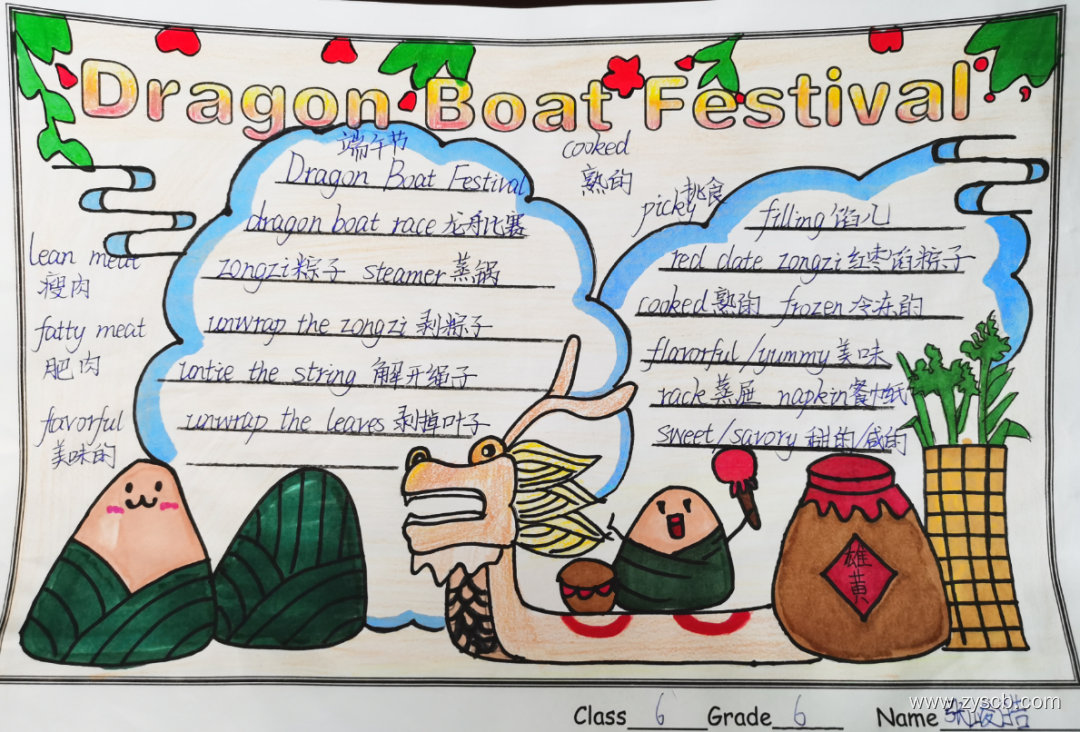 Dragon Boat Festival
端午节
Dragon Boat Festival
dragon boat race 龙舟比赛
zongzi 粽子 steamer 蒸锅
unwrap the zongzi 剥粽子
untie the string 解开绳子
unwrap the leaves 剥掉叶子
lean meat
瘦肉
fatty meat
肥肉
flavorful
美味的
cooked
熟的
picky 挑食
filling 馅儿
red date zongzi 红枣馅粽子
cooked 熟的 frozen 冷冻的
flavorful/yummy 美味
rack 蒸屉 napkin 餐巾纸
sweet/savory 甜的/咸的
雄黄
Class 6 Grade 6 Name
www.zyscb.com